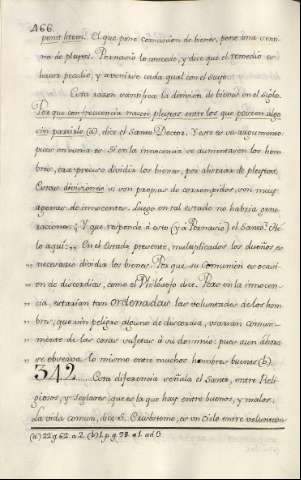 466.
ponit litem. El que pone Comunion de bienes, pone una conti-
nua de pleytos. Pornasio lo concede, y dice que el remedio es
hacer pecado, y avenirse cada qual con el suyo.
Esta razon santifica la division de bienes en el siglo.
Por que con frecuencia nacen pleytos entre los que poseen algo
sin partirlo (a), dice el Santo Doctor. Y este es su argumento
pues oirianis es: Si en la innocencia se aumentasen los hom-
bres, era preciso dividir los bienes, por abstraer de pleytos.
Estas divisiones no son propias de corrompidos, son muy
agenas de innocentes. Luego en tal estado no habria gene-
raciones. ¿Y que responde á esto (y á Pornasio) el Santo? He-
lo aquí: „ En el Estado presente, multiplicados los dueños, es
„ necesario dividir los bienes. Por que su Comunion es ocasi-
„ on de discordias, como el Philósofo dice. Pero en la innocen-
„ cia, estarian tan ordenadas las voluntades de los hom-
„ bres, que sin peligro alguno de discordia, usarian comun-
„ mente de las cosas sujetas á su dominio: pues aun ahora
„ se observa lo mismo entre muchos hombres buenos (b).
342. Esta diferencia señala el Santo, entre Reli-
giosos, y Seglares; que es la que hay entre buenos, y malos.
La vida comun, dice S. Crisóstomo, es un Cielo entre voluntades
(a) 22 q. 62. a. 2. (b) 1. p. q. 98. a. 1. ad 3.